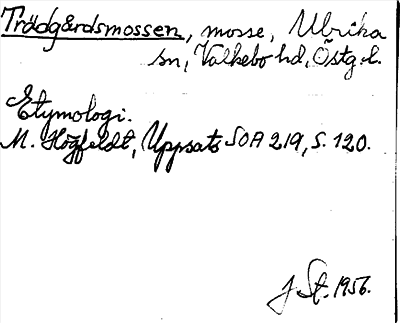 Trädgårdsmossen, mosse, Ulrika
sn, Valkebo hd, Östg. l.
Etymologi.
M. Högfeldt, Uppsats SOA 219, s. 120.
J St. 1956.